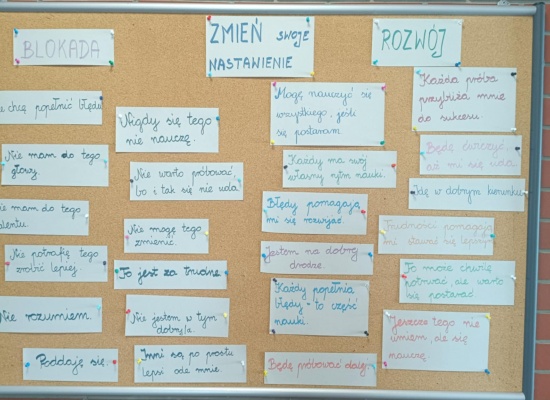 BLOKADA
ZMIEŃ SWOJE
NASTAWIENIE
ROZWÓJ
chcę popełnić błędu
Nie mam do tego
głowy.
nie mam do tego
talentu.
Nie potrafię tego
zrobić lepiej.
Nie rozumiem.
Poddaję się.
Nigdy się tego
nie nauczę.
Nie warto próbować,
bo i tak się nie uda.
Nie mogę tego
zmienić.
To jest za trudne.
Nie jestem w tym
dobry/a.
Inni są po prostu
lepsi ode mnie.
Mogę nauczyć się
wszystkiego, jeśli
się postaram
Każdy ma swój
własny rytm nauki.
Błędy pomagają
mi się rozwijać.
Jestem na dobrej
drodze.
Każdy popełnia
błędy - to część
nauki.
Będę próbować dalej.
Każda próba
przybliża mnie
do sukcesu.
Będę ćwiczyć,
aż mi się uda.
Idę w dobrym kierunku.
Trudności pomagają
mi stawać się lepszym
To może chwilę
potrwać, ale warto
się postarać.
Jeszcze tego nie
umiem, ale się
nauczę.